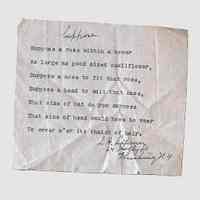 Suppose
Suppose a rose within a bower
As large as good sized cauliflower,
Suppose a nose to fit that rose,
Suppose a head to suit that nose,
That size of hat do you suppose
That size of head would have to wear
To cover o'er its thatch of hair.